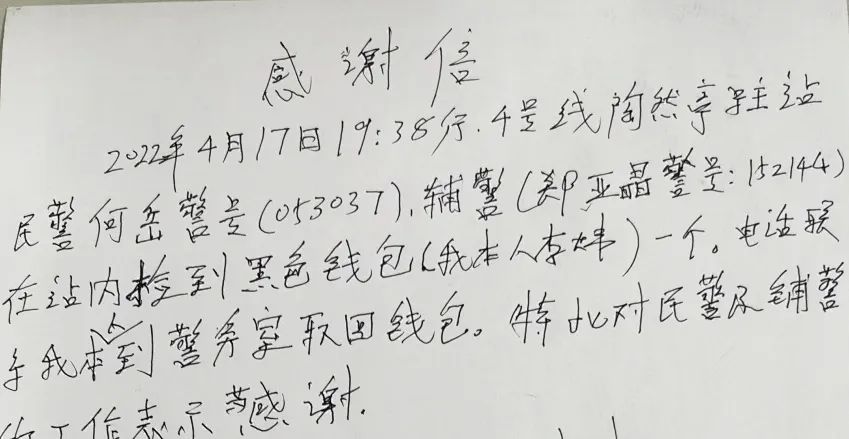 感谢信
2022年4月17日19:38分.4号线陶然亭驻站
民警何岳警号(053037),辅警(郑亚晶警号:152144)
在站内捡到黑色钱包(我本人李炜)一个。电话联
系我本人到警务室取回钱包。特此对民警及辅警
的工作表示感谢.